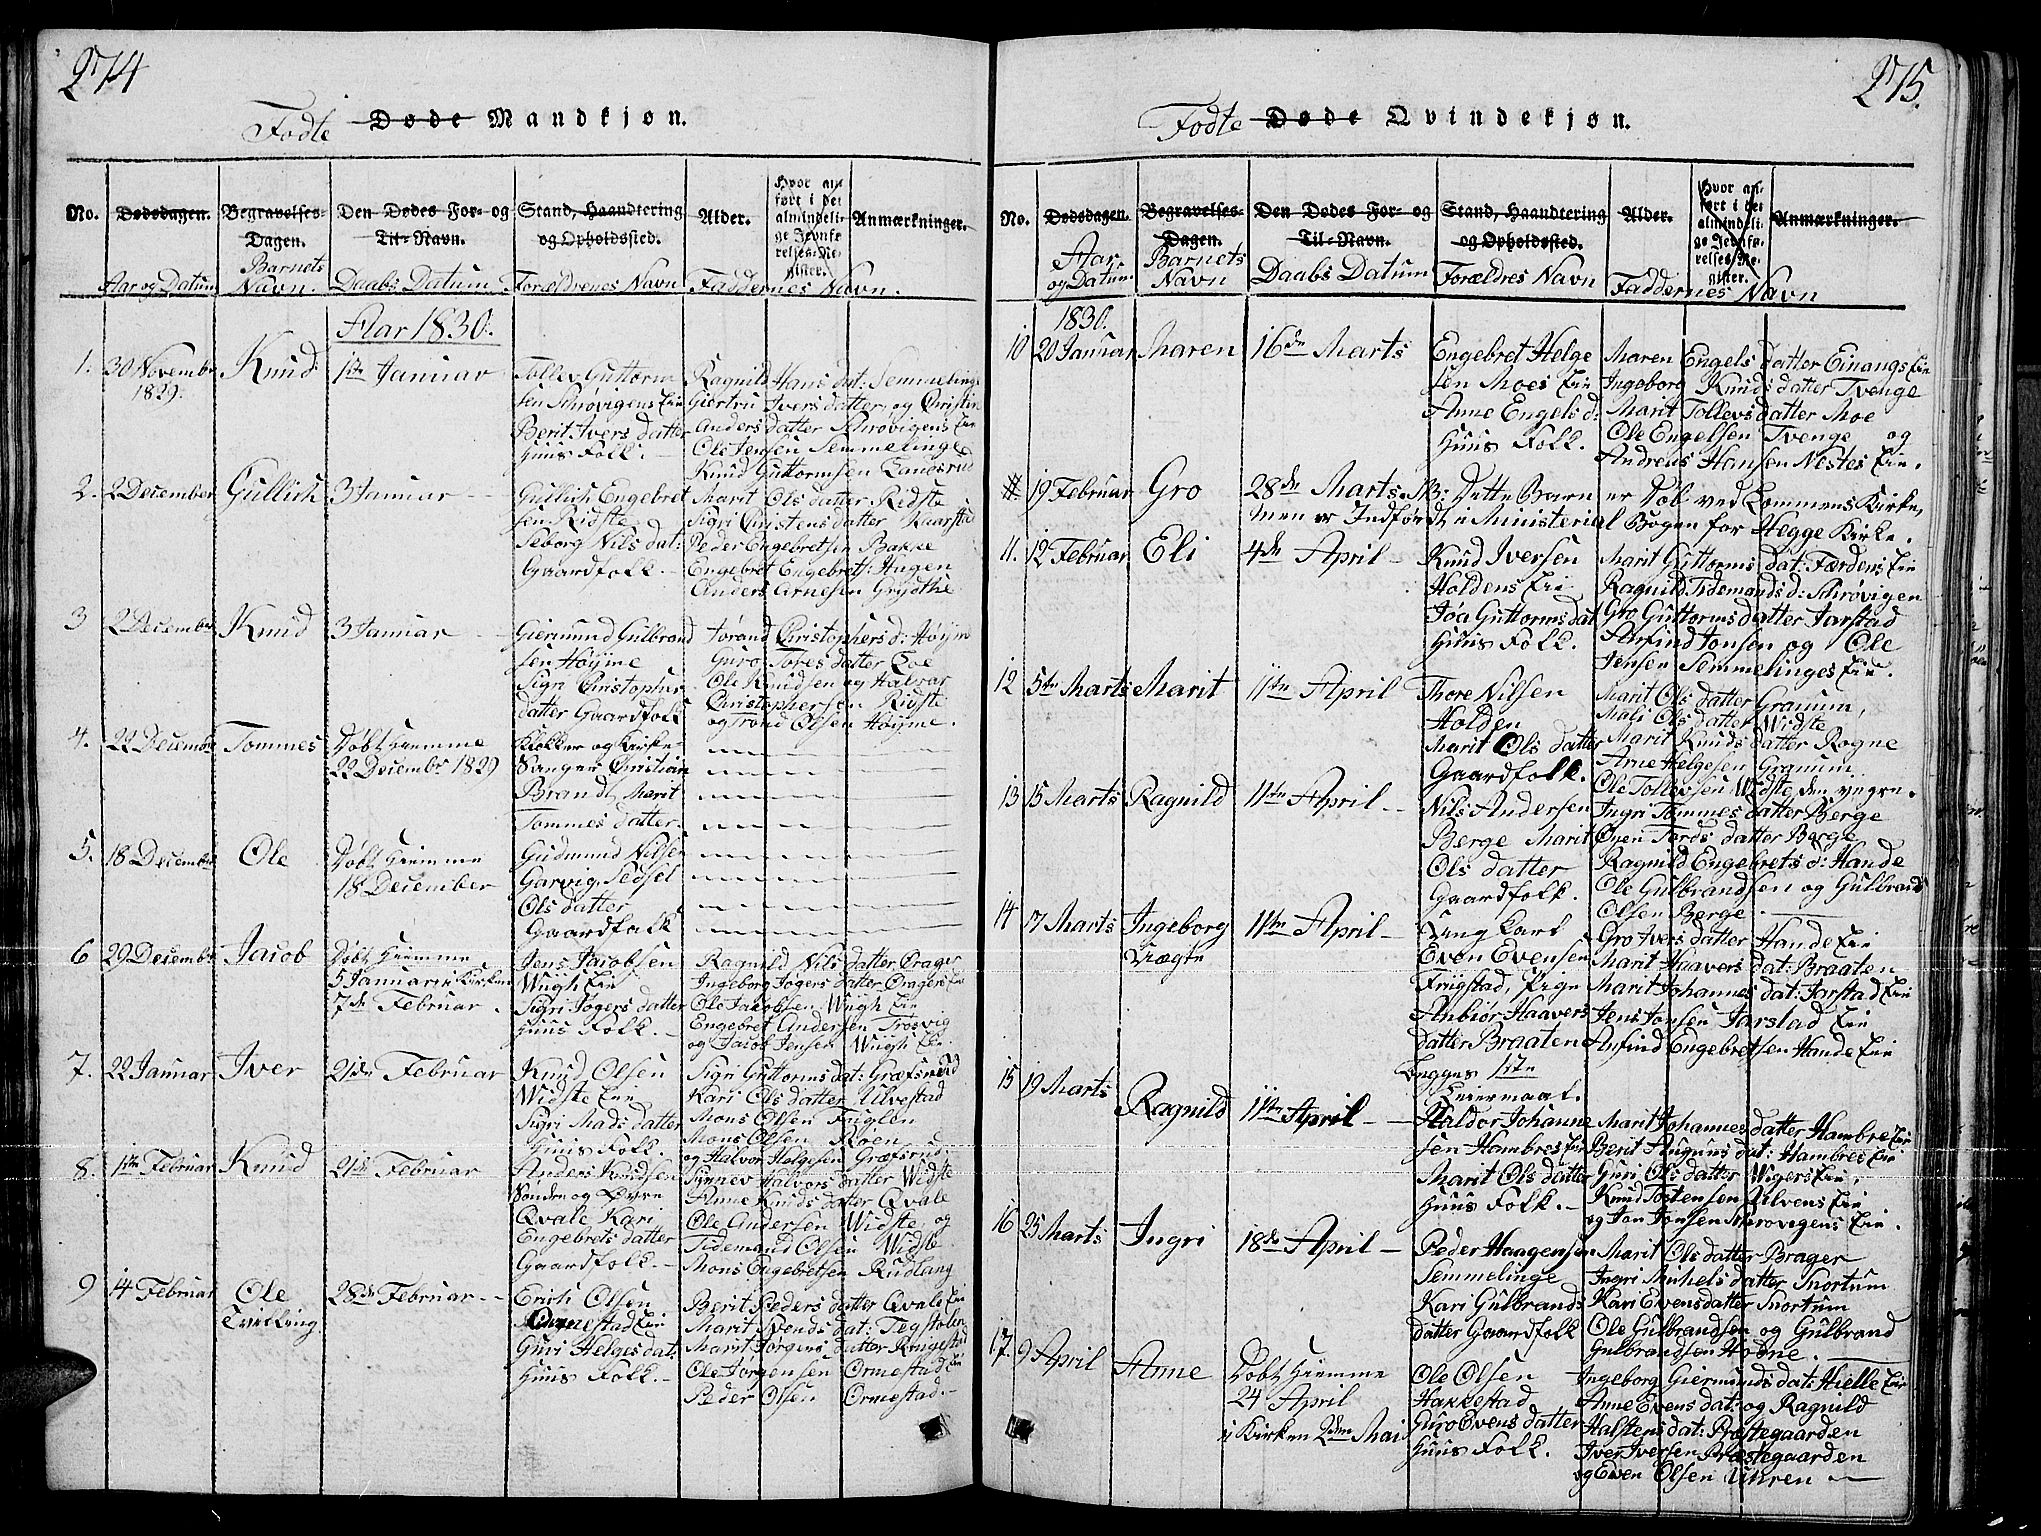 274
Fødte Døde Mandkjøn.
No. Dødsdagen. Begravelses-Dagen. Den Dødes For- og Til-Navn. Stand, Haandtering og Opholdssted. Alder. Hvor anført i det almindelige Jevnførelses-Register. Anmærkninger.
Aar og Datum Barnets Navn. Daabs Datum Forældrenes Navn Faddernes Navn.
Aar 1830.
1. 30 Novembr 1829. Knud 1ste Januar
Tollev Guttorm
sen Skrøvigens Eie
Berit Ivers datter
Huus Folk.
Ragnild Hans dat: Semmeling
Giertru Ivers datter og Christin
Anders datter Skrøvigens Eie
Ole Jensen Semmelinge
Knud Guttormsen
2. 2 December Gullich 3 Januar
Gullich Engebret
sen Ridste
Seborg Nils dat:
Gaardfolk.
Marit Ols datter Ridste
Sigri Christens datter Kaarstad
Peder Engebretsen Bakke
Engebret Engebrets: Haugen
Anders Arnesen Grydthe
3 2 December Knud 3 Januar
Giermund Gulbrand
sen Høyme
Sigri Christopher
datter Gaardfolk
Torand Christophers d: Høym
Guro Tores datter Loe
Ole Knudsen og Halvor
Christophersen Ridste
og Trond Olsen Høyme.
4. 22 December Tommes Døbt Hiemme
22 Decembr 1829
Klokker og Kirke-
Sanger Christian
Brandt, Marit
Tommes datter.
5. 18 December Ole Døbt Hiemme
18 December
Gudmund Nilsen
Garvig, Sidsel
Ols datter
Gaardfolk
6 29 Decembr Jacob Døbt Hiemme
5 Januar i Kirken
7de Februar.
Jens Jacobsen
Wiigh Eie
Sigri Jogers datter
Huus Folk.
Ragnild Nils datter Drager
Ingeborg Jogers datter Dragers Eie
Ole Jakobsen Wiigh Eie
Engebret Andersen Trøsvig
og Jacob Jensen Wiigh Eie
7. 22 Januar Iver 21de Februar
Knud Olsen
Widste Eie
Sigri Mads datter
Huus Folk.
Sigri Guttorms dat: Græfsrud
Kari Ols datter Ulvestad
Mons Olsen Fuglen
Mons Olsen Røen
og Halvor Helgesen Græfsrud
8. 1ste Februar Knud 21de Februar
Anders Knudsen
Søndre og Øvre
Qvale Kari
Engebrets datter
Gaardfolk.
Synnev Halvors datter Widste
Anne Knuds datter Qvale
Ole Andersen Widste og
Tidemand Olsen Widste
Mons Engebretsen Rudlang
9 14 Februar Ole Tvilling 28de Februar
Erich Olsen
Ormestad Eie
Guri Helges dat:
Huus Folk.
Berit Peders datter Qvale Eie
Marit Svends dat: Tegstolen
Marit Jørgens datter Ringestad
Ole Jørgensen Ormestad Eie
Peder Olsen Ormestad.
275.
Fødte Døde Qvindekjøn.
No. Dødsdagen. Begravelses-Dagen. Den Dødes For- og Til-Navn. Stand, Haandtering og Opholdssted. Alder. Hvor anført i det almindelige Jevnførelses-Register. Anmærkninger.
Aar og Datum Barnets Navn Daabs Datum Forældres Navn Faddernes Navn
1830.
10 20 Januar Maren 16de Marts
Engebret Helge
sen Moes Eie
Anne Engels d:
Huus Folk.
Maren Engels datter Einangs Eie
Ingeborg Knuds datter Tvenge
Marit Tollevs datter Moe
Ole Engelsen Tvenge og
Andreas Hansen Nestes Eie.
# 19 Februar Gro 28de Marts. NB: Dette Barn er Døbt ved Lommens Kirke,
men er Indført i Ministerial Bogen for Hegge Kirke.
11. 12 Februar Eli 4de April
Knud Iversen
Holdens Eie
Jøa Guttorms dat
Huus Folk.
Marit Guttorms dat: Færdens Eie
Ragnild Tidemands d: Skrøvigen
Gro Guttorms datter Jarstad
Arfind Jonsen og Ole
Jensen Semmelinges Eie.
12 5te Marts Marit 11te April
Thore Nilsen
Holden
Marit Ols datter
Gaardfolk.
Marit Ols datter Granum,
Mali Ols datter Widste
Marit Knuds datter Rogne
Arne Helgesen Granum
Ole Tollevsen Widste den yngre.
13 15 Marts Ragnild 11te April
Nils Andersen
Berge Marit
Ols datter
Gaardfolk.
Ingri Tommes datter Berge
Øyen Tords datter Berge
Ragnild Engebrets d: Hande
Ole Gulbrandsen og Gulbrand
Olsen Berge.
14 7 Marts Ingeborg Uægte 11te April
Ung Karl
Even Evensen
Friigstad, Pige
Anbiør Haavers
datter Braaten
Begges 1ste
Leiermaal.
Gro Ivers datter Hande Eie
Marit Haavers dat: Braaten
Marit Johannes dat: Jarstad Eie
Jens Jonsen Jarstad Eie
Arfind Engebretsen Hande Eie
15 19 Marts Ragnild 11te April
Haldor Johanne
sen Hambres Eie
Marit Ols datter
Huus Folk.
Marit Johannes datter Hambre Eie
Berit Auguns dat: Hambres Eie
Guri Ols datter Wigers Eie,
Knud Tostensen Ulvens Eie
og Jon Jonsen Skrøvigens Eie.
16 25 Marts Ingri 18de April
Peder Haagensen
Semmelinge
Kari Gulbrands
datter Gaardfolk
Marit Ols datter Brager
Ingri Michels datter Snortum
Kari Evens datter Snortum
Ole Gulbrandsen og Gulbrand
Gulbrandsen Hogne.
17. 9 April Anne Døbt Hiemme
24 April
i Kirken 2den Mai
Ole Olsen
Hakkestad
Guro Evens datter
Huus Folk.
Ingeborg Giermunds dat: Hielle Eie
Anne Evens dat: og Ragnild
Halstens dat: Præstegaarden
Iver Iversen Præstegaarden
og Even Olsen Uhren